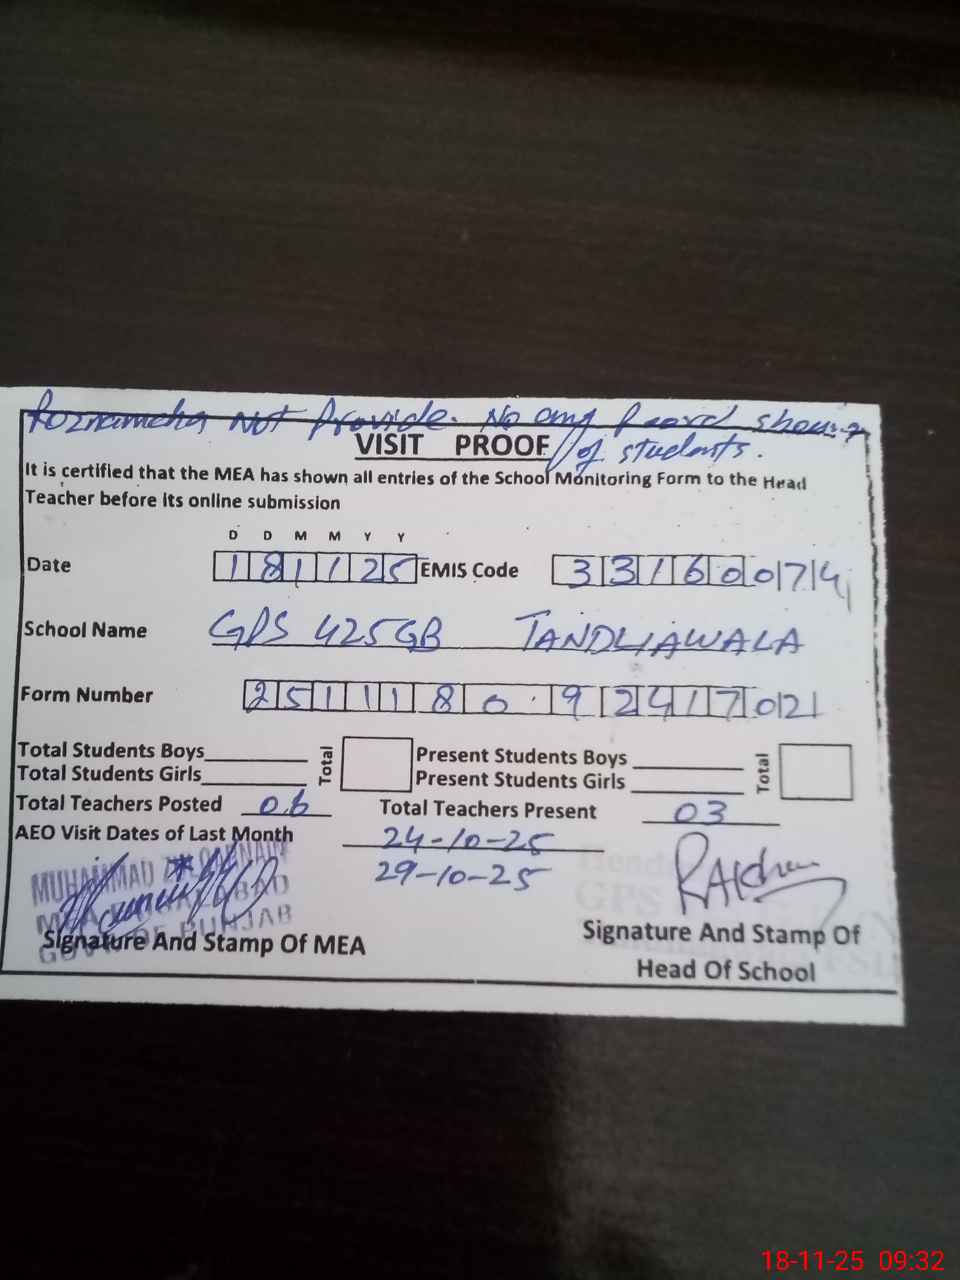 Roznamcha Not Provide. No any Record showing
of students.
VISIT PROOF
It is certified that the MEA has shown all entries of the School Monitoring Form to the Head
Teacher before its online submission
D D M M Y Y
Date 181125 EMIS Code 33160074
School Name GPS 425GB TANDLIAWALA
Form Number 2511180924 1702
Total Students Boys Total Present Students Boys Total
Total Students Girls Present Students Girls
Total Teachers Posted 06 Total Teachers Present 03
AEO Visit Dates of Last Month 24-10-25
29-10-25
MUHAMMAD
GOVT OF PUNJAB
GPS
Signature And Stamp Of MEA
Signature And Stamp Of
Head Of School
18-11-25 09:32